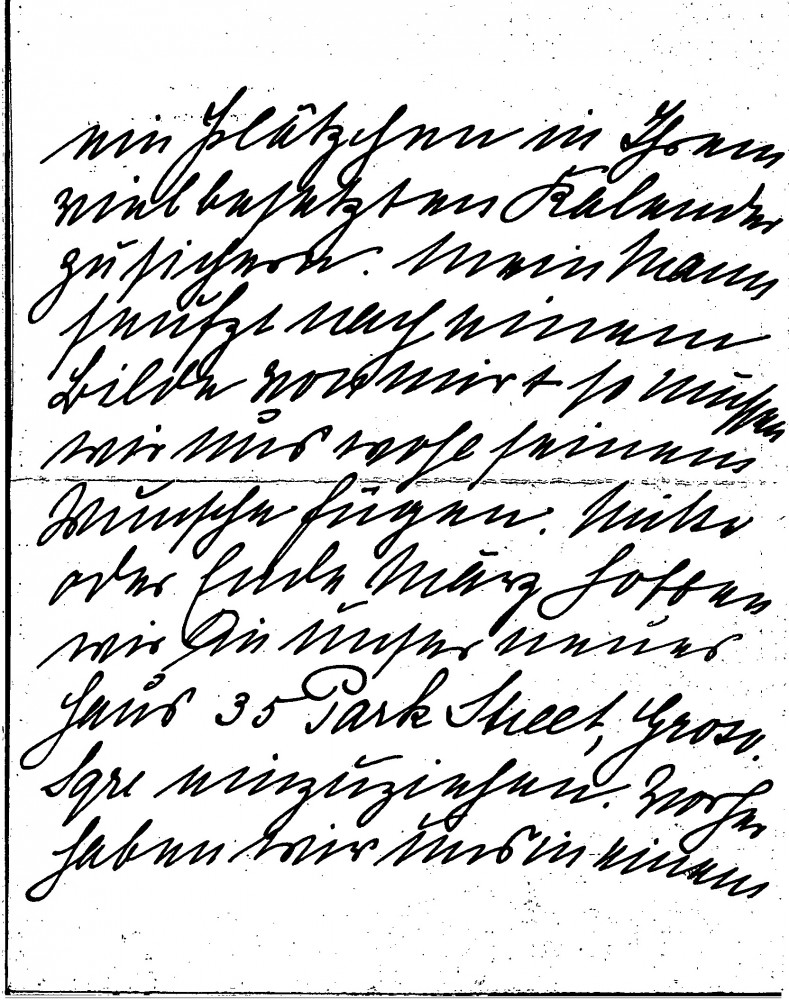 ein Plätzchen in Ihrem
vielbesetzten Kalender
zu sichern. Mein Mann
seufzt nach einem
Bilde von mir & so müssen
wir uns wohl seinem
Wunsche fügen. Mitte
oder Ende März hoffen
wir in unser neues
Haus 35 Park Street, Grosv.
Sqre einzuziehen. Vorher
haben wir uns in einem